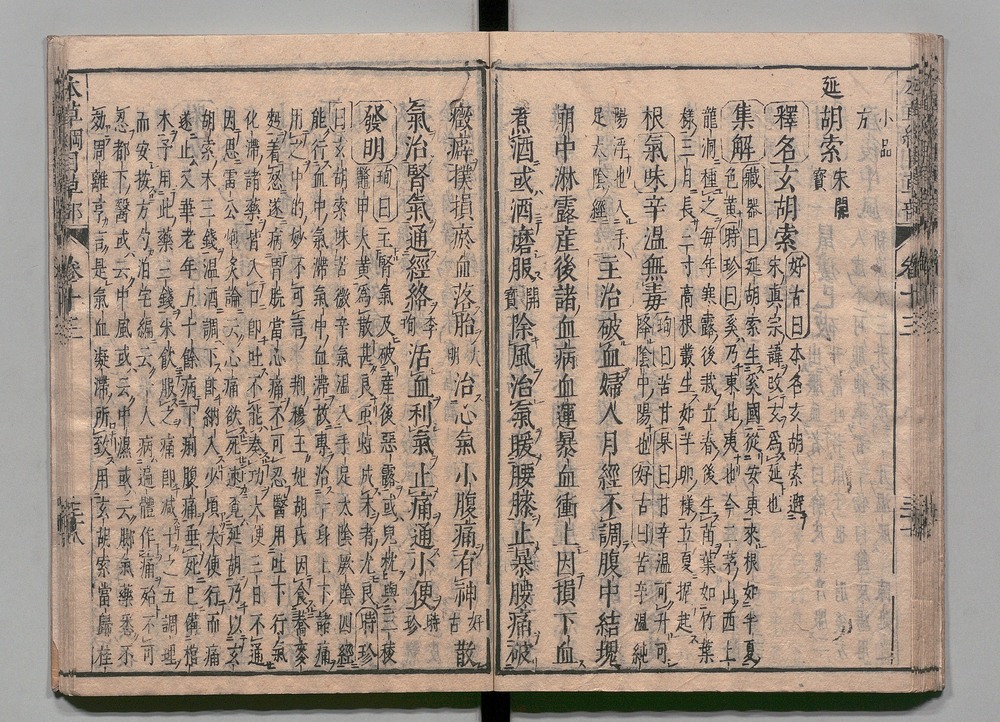 小品
方
延胡索 宋開寶
釋名玄胡索 好古曰本名玄胡索避
宋真宗諱改玄爲延也
集解 藏器曰延胡索生奚國從安東來根如半夏
色黃時珍曰奚乃東北夷也今二茅山西上
龍洞種之每年寒露後栽立春後生苗葉如竹葉
樣三月長三寸高根叢生如芋卵樣立夏掘起
根氣味辛溫無毒 珣曰苦甘杲曰甘辛溫可升可
降陰中陽也好古曰苦辛溫純
陽浮也入手
足太陰經 主治破血婦人月經不調腹中結塊
崩中淋露產後諸血病血運暴血衝上因損下血
煮酒或酒磨服 開寶 除風治氣暖腰膝止暴腰痛破
癥癖撲損瘀血落胎 大明 治心氣小腹痛有神 好古 散
氣治腎氣通經絡 李珣 活血利氣止痛通小便 時珍
發明 珣曰主腎氣及破產後惡露或兒枕與三稜
鼈甲大黃爲散甚良蟲蛀成末者尤良時珍
曰玄胡索味苦微辛氣溫入手足太陰厥陰四經
能行血中氣滯氣中血滯故專治一身上下諸痛
用之中的妙不可言荆穆王妃胡氏因食蕎麥
麪着怒遂病胃脘當心痛不可忍醫用吐下行氣
化滯諸藥皆入口即吐不能奏功大便三日不通
因思雷公炮炙論云心痛欲死速覓延胡乃以玄
胡索末三錢溫酒調下即納入少頃大便行而痛
遂止又華老年五十餘病下痢腹痛垂死已備棺
木予用此藥三錢米飲服之痛即減十之五調理
而安按方勺泊宅編云一人病遍體作痛殆不可
忍都下醫或云中風或云中濕或云脚氣藥悉不
効周離亨言是氣血凝滯所致用玄胡索當歸桂
卷十三